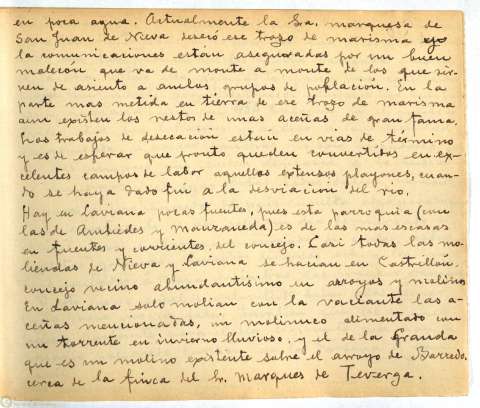 en poca agua. Actualmente la Sra. marquesa de
San Juan de Nieva desecó ese trozo de marisma y
la comunicaciones están aseguradas por un buen
malecón que va de monte a monte de los que sir-
ven de asiento a ambos grupos de población. En la
parte mas metida en tierra de ese trozo de marisma
aun existen los restos de unas aceñas de gran fama.
Los trabajos de desecación están en vías de término
y es de esperar que pronto queden convertidos en ex-
celentes campos de labor aquellos extensos playones, cuan-
do se haya dado fin a la desviación del rio.
Hay en Laviana pocas fuentes, pues esta parroquia (con
las de Ambiedes y Manzaneda) es de las mas escasas
en fuentes y corrientes del concejo. Casi todas las mo-
liendas de Nieva y Laviana se hacian en Castrillón,
concejo vecino abundantisimo en arroyos y molinos
En Laviana solo molian con la vaciante las a-
ceñas mencionadas, un molinuco alimentado con
un torrente en invierno lluvioso, y el de la Granda
que es un molino existente sobre el arroyo de Barredo,
cerca de la finca del Sr. Marques de Teverga.